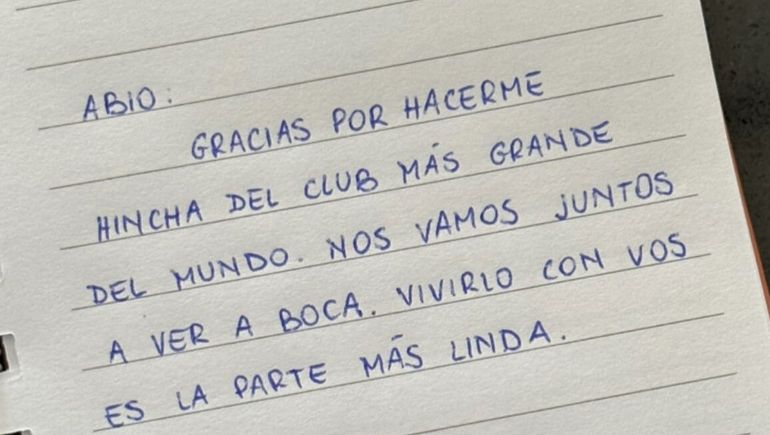 ABIO:
GRACIAS POR HACERME
HINCHA DEL CLUB MÁS GRANDE
DEL MUNDO. NOS VAMOS JUNTOS
A VER A BOCA. VIVIRLO CON VOS
ES LA PARTE MÁS LINDA.